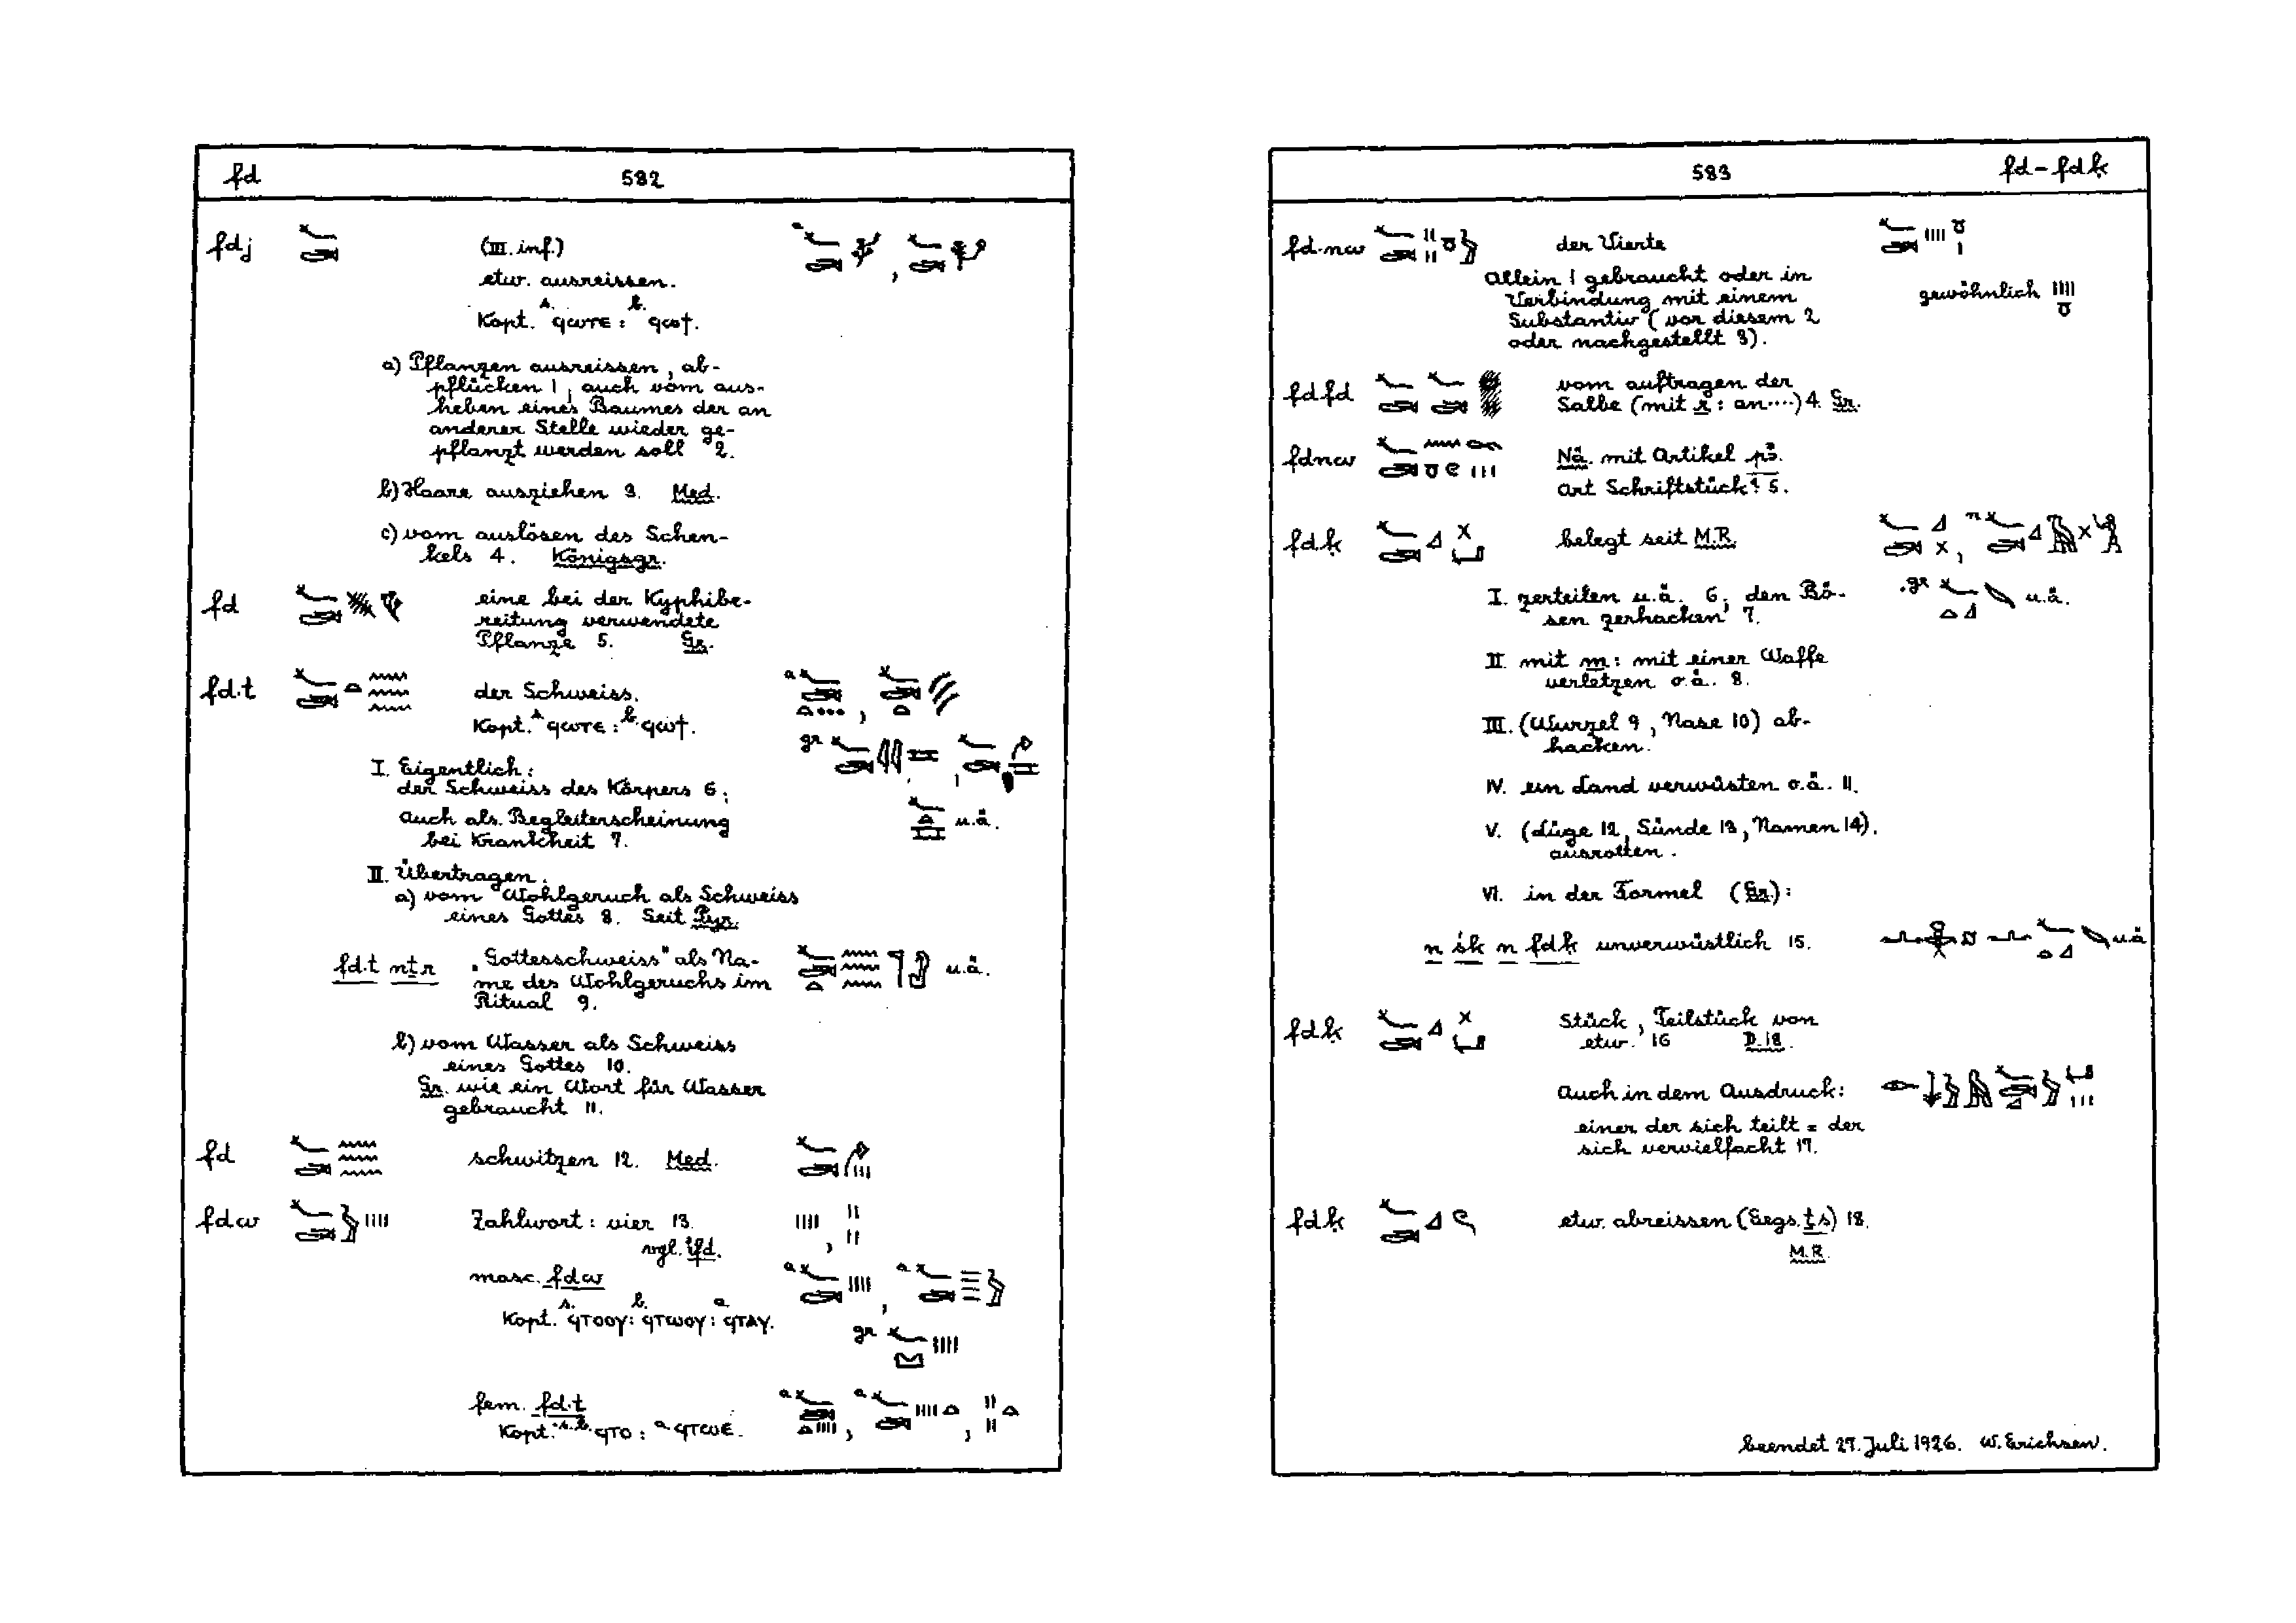 fd 582
fdj (III. inf.)
etw. ausreissen.
s. b.
Kopt. ϥⲱⲧⲉ: ϥⲱϯ.
a) Pflanzen ausreissen, ab-
pflücken 1, auch vom aus-
heben eines Baumes der an
anderer Stelle wieder ge-
pflanzt werden soll 2.
b) Haare ausziehen 3. Med.
c) vom auslösen des Schen-
kels 4. Königsgr.
fd eine bei der Kyphibe-
reitung verwendete
Pflanze 5. Gr.
fd.t der Schweiss. a
Kopt. s ϥⲱⲧⲉ: b ϥⲱϯ.
gr
I. Eigentlich:
der Schweiss des Körpers 6;
auch als Begleiterscheinung u.ä.
bei Krankheit 7.
II. Übertragen.
a) vom Wohlgeruch als Schweiss
eines Gottes 8. Seit Pyr.
fd.t nṯr „Gottesschweiss" als Na- u.ä.
me des Wohlgeruchs im
Ritual 9.
b) vom Wasser als Schweiss
eines Gottes 10.
Gr. wie ein Wort für Wasser
gebraucht 11.
fd schwitzen 12. Med.
fdw Zahlwort: vier 13.
vgl. ifd.
masc. fdw a a
s. b. a
Kopt. ϥⲧⲟⲟⲩ: ϥⲧⲱⲟⲩ: ϥⲧⲁⲩ.
gr
fem. fd.t a a
Kopt. s.b. ϥⲧⲟ: a ϥⲧⲱⲉ.
583 fd-fdḳ
fd.nw der Vierte
Allein 1 gebraucht oder in
Verbindung mit einem gewöhnlich
Substantiv (vor diesem 2
oder nachgestellt 3).
fdfd vom auftragen der
Salbe (mit r: an....) 4. Gr.
fdnw Nä. mit Artikel pꜣ.
Art Schriftstück? 5.
fdḳ belegt seit M.R. n
I. zerteilen u.ä. 6; den Bö- gr u.ä.
sen zerhacken 7.
II. mit m: mit einer Waffe
verletzen o.ä. 8.
III. (Wurzel 9, Nase 10) ab-
hacken.
IV. ein Land verwüsten o.ä. 11.
V. (Lüge 12, Sünde 13, Namen 14).
ausrotten.
VI. in der Formel (Gr.):
n śk n fdḳ unverwüstlich 15. u.ä
fdḳ Stück, Teilstück von
etw. 16 D.18.
Auch in dem Ausdruck:
einer der sich teilt = der
sich vervielfacht 17.
fdḳ etw. abreissen (Gegs. ṯs) 18.
M.R.
beendet 27. Juli 1926. W. Erichsen.